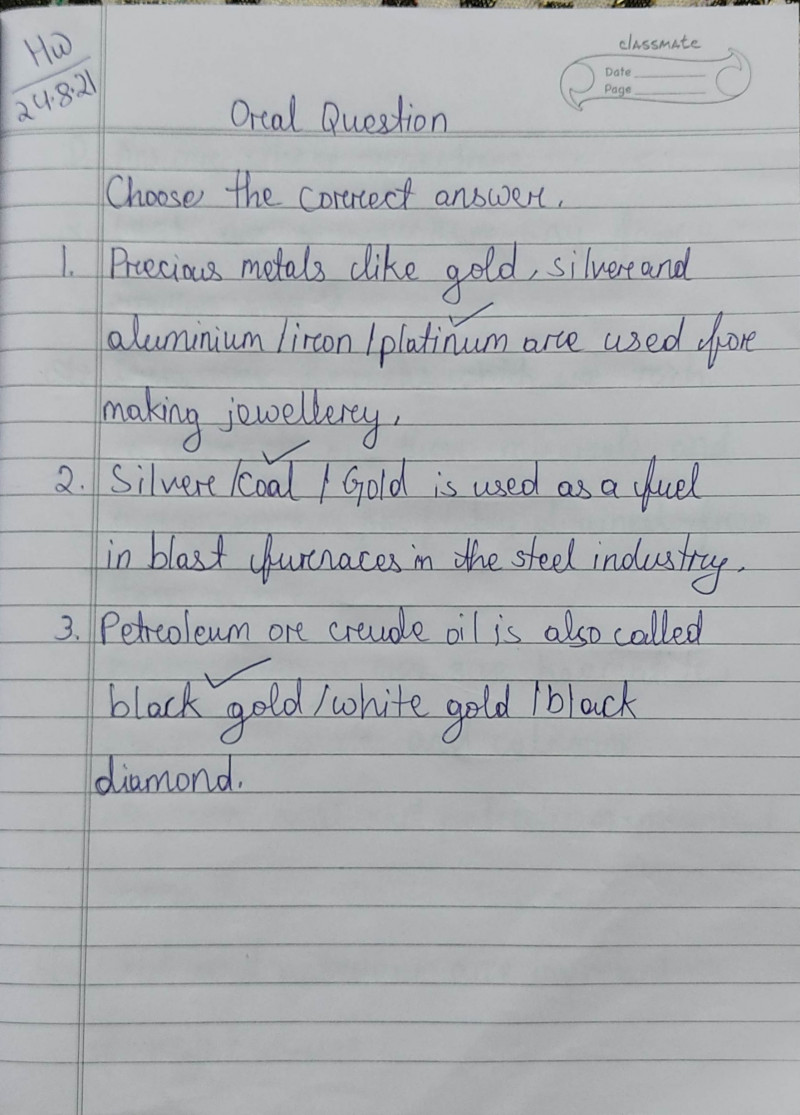 HW
24.8.21
classmate
Date
Page
Oral Question
Choose the correct answer.
1. Precious metals like gold, silver and
aluminium / iron / platinum are used for
making jewellery.
2. Silver / Coal / Gold is used as a fuel
in blast furnaces in the steel industry.
3. Petroleum or crude oil is also called
black gold / white gold / black
diamond.